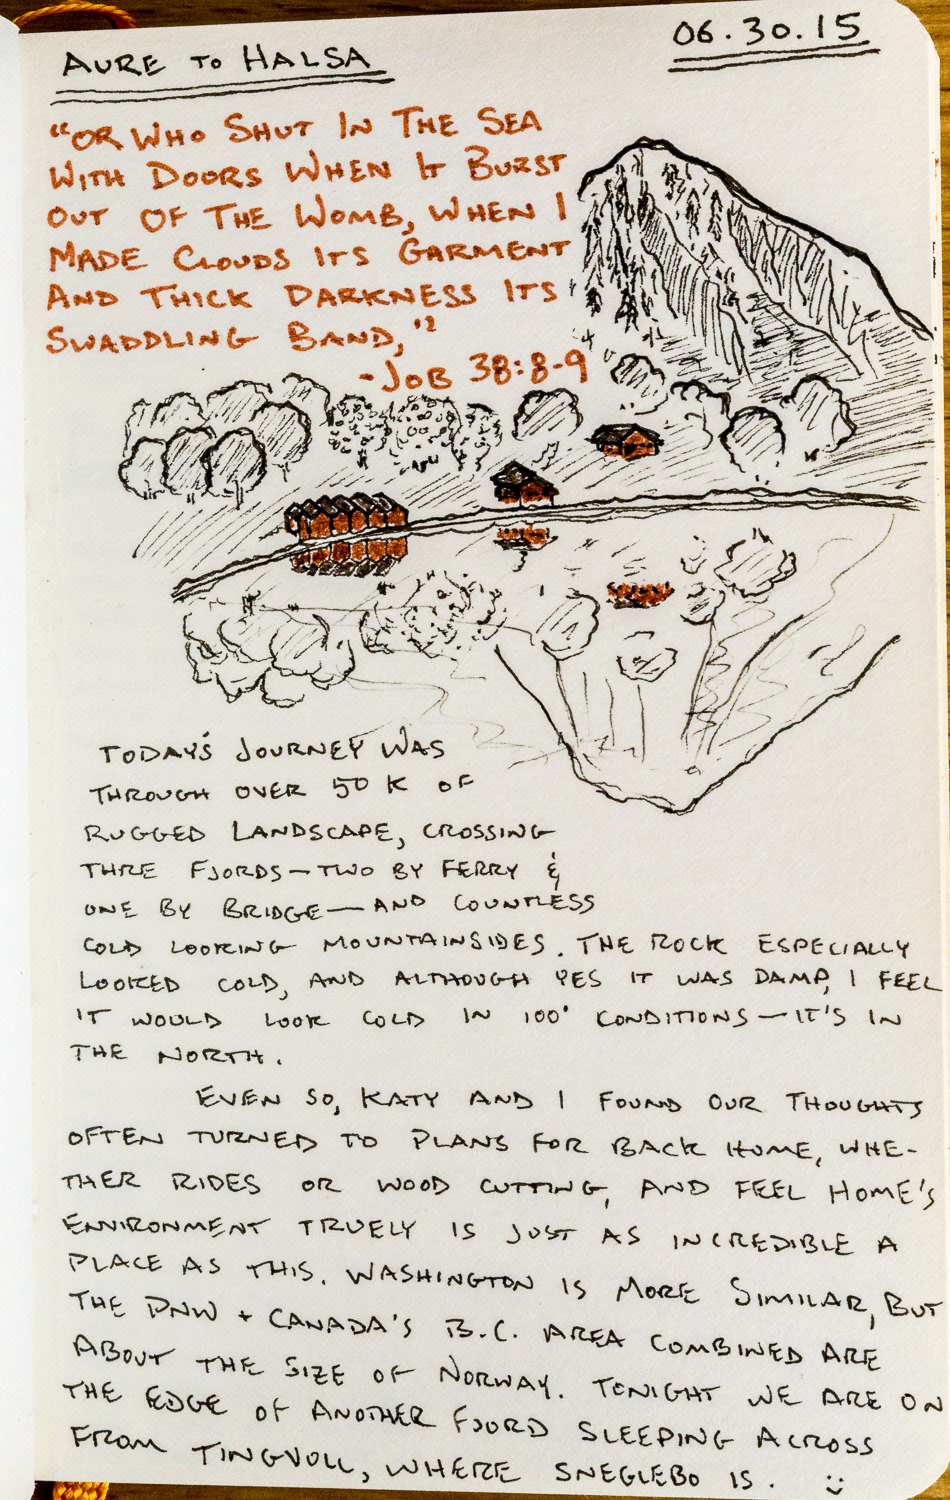 AURE TO HALSA
06.30.15
"OR WHO SHUT IN THE SEA
WITH DOORS WHEN IT BURST
OUT OF THE WOMB, WHEN I
MADE CLOUDS ITS GARMENT
AND THICK DARKNESS ITS
SWADDLING BAND,"
-JOB 38:8-9
TODAY'S JOURNEY WAS
THROUGH OVER 50 K OF
RUGGED LANDSCAPE, CROSSING
THRE FJORDS—TWO BY FERRY &
ONE BY BRIDGE—AND COUNTLESS
COLD LOOKING MOUNTAINSIDES. THE ROCK ESPECIALLY
LOOKED COLD, AND ALTHOUGH YES IT WAS DAMP, I FEEL
IT WOULD LOOK COLD IN 100° CONDITIONS—IT'S IN
THE NORTH.
EVEN SO, KATY AND I FOUND OUR THOUGHTS
OFTEN TURNED TO PLANS FOR BACK HOME, WHE-
THER RIDES OR WOOD CUTTING, AND FEEL HOME'S
ENVIRONMENT TRUELY IS JUST AS INCREDIBLE A
PLACE AS THIS. WASHINGTON IS MORE SIMILAR, BUT
THE PNW + CANADA'S B.C. AREA COMBINED ARE
ABOUT THE SIZE OF NORWAY. TONIGHT WE ARE ON
THE EDGE OF ANOTHER FJORD SLEEPING ACROSS
FROM TINGVOLL, WHERE SNEGLEBO IS. :)